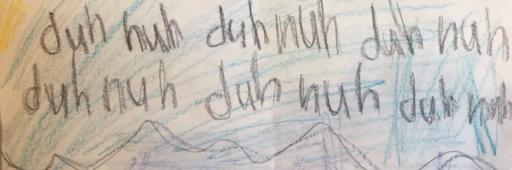 duh nuh duh nuh duh nuh
duh nuh duh nuh duh nuh